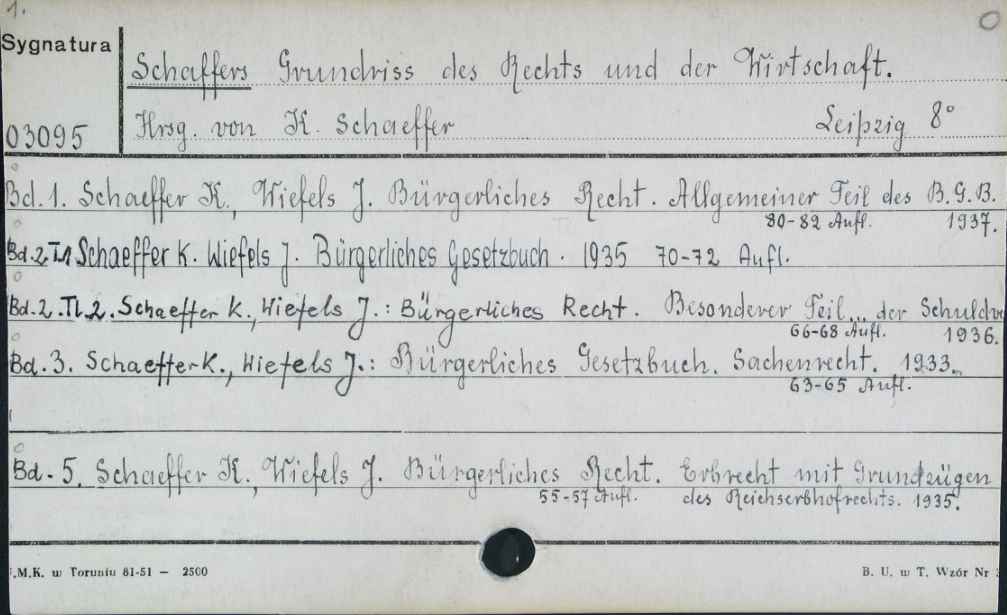 1.
Sygnatura
Schaffers Grundriss des Rechts und der Wirtschaft.
03095
Hrsg. von K. Schaeffer Leipzig 8°
Bd. 1. Schaeffer K., Wiefels J. Bürgerliches Recht. Allgemeiner Teil des B.G.B.
80-82 Aufl. 1937.
Bd. 2 Tl 1 Schaeffer K. Wiefels J. Bürgerliches Gesetzbuch. 1935 70-72 Aufl.
Bd. 2. Tl. 2. Schaeffer K., Wiefels J.: Bürgerliches Recht. Besonderer Teil... der Schuldve
66-68 Aufl. 1936.
Bd. 3. Schaeffer K., Wiefels J.: Bürgerliches Gesetzbuch. Sachenrecht. 1933.
63-65 Aufl.
Bd. 5. Schaeffer K., Wiefels J. Bürgerliches Recht. Erbrecht mit Grundzügen
55-57 Aufl. des Reichserbhofrechts. 1935.
.M.K. w Toruniu 81-51 — 2500 B. U. w T. Wzór Nr